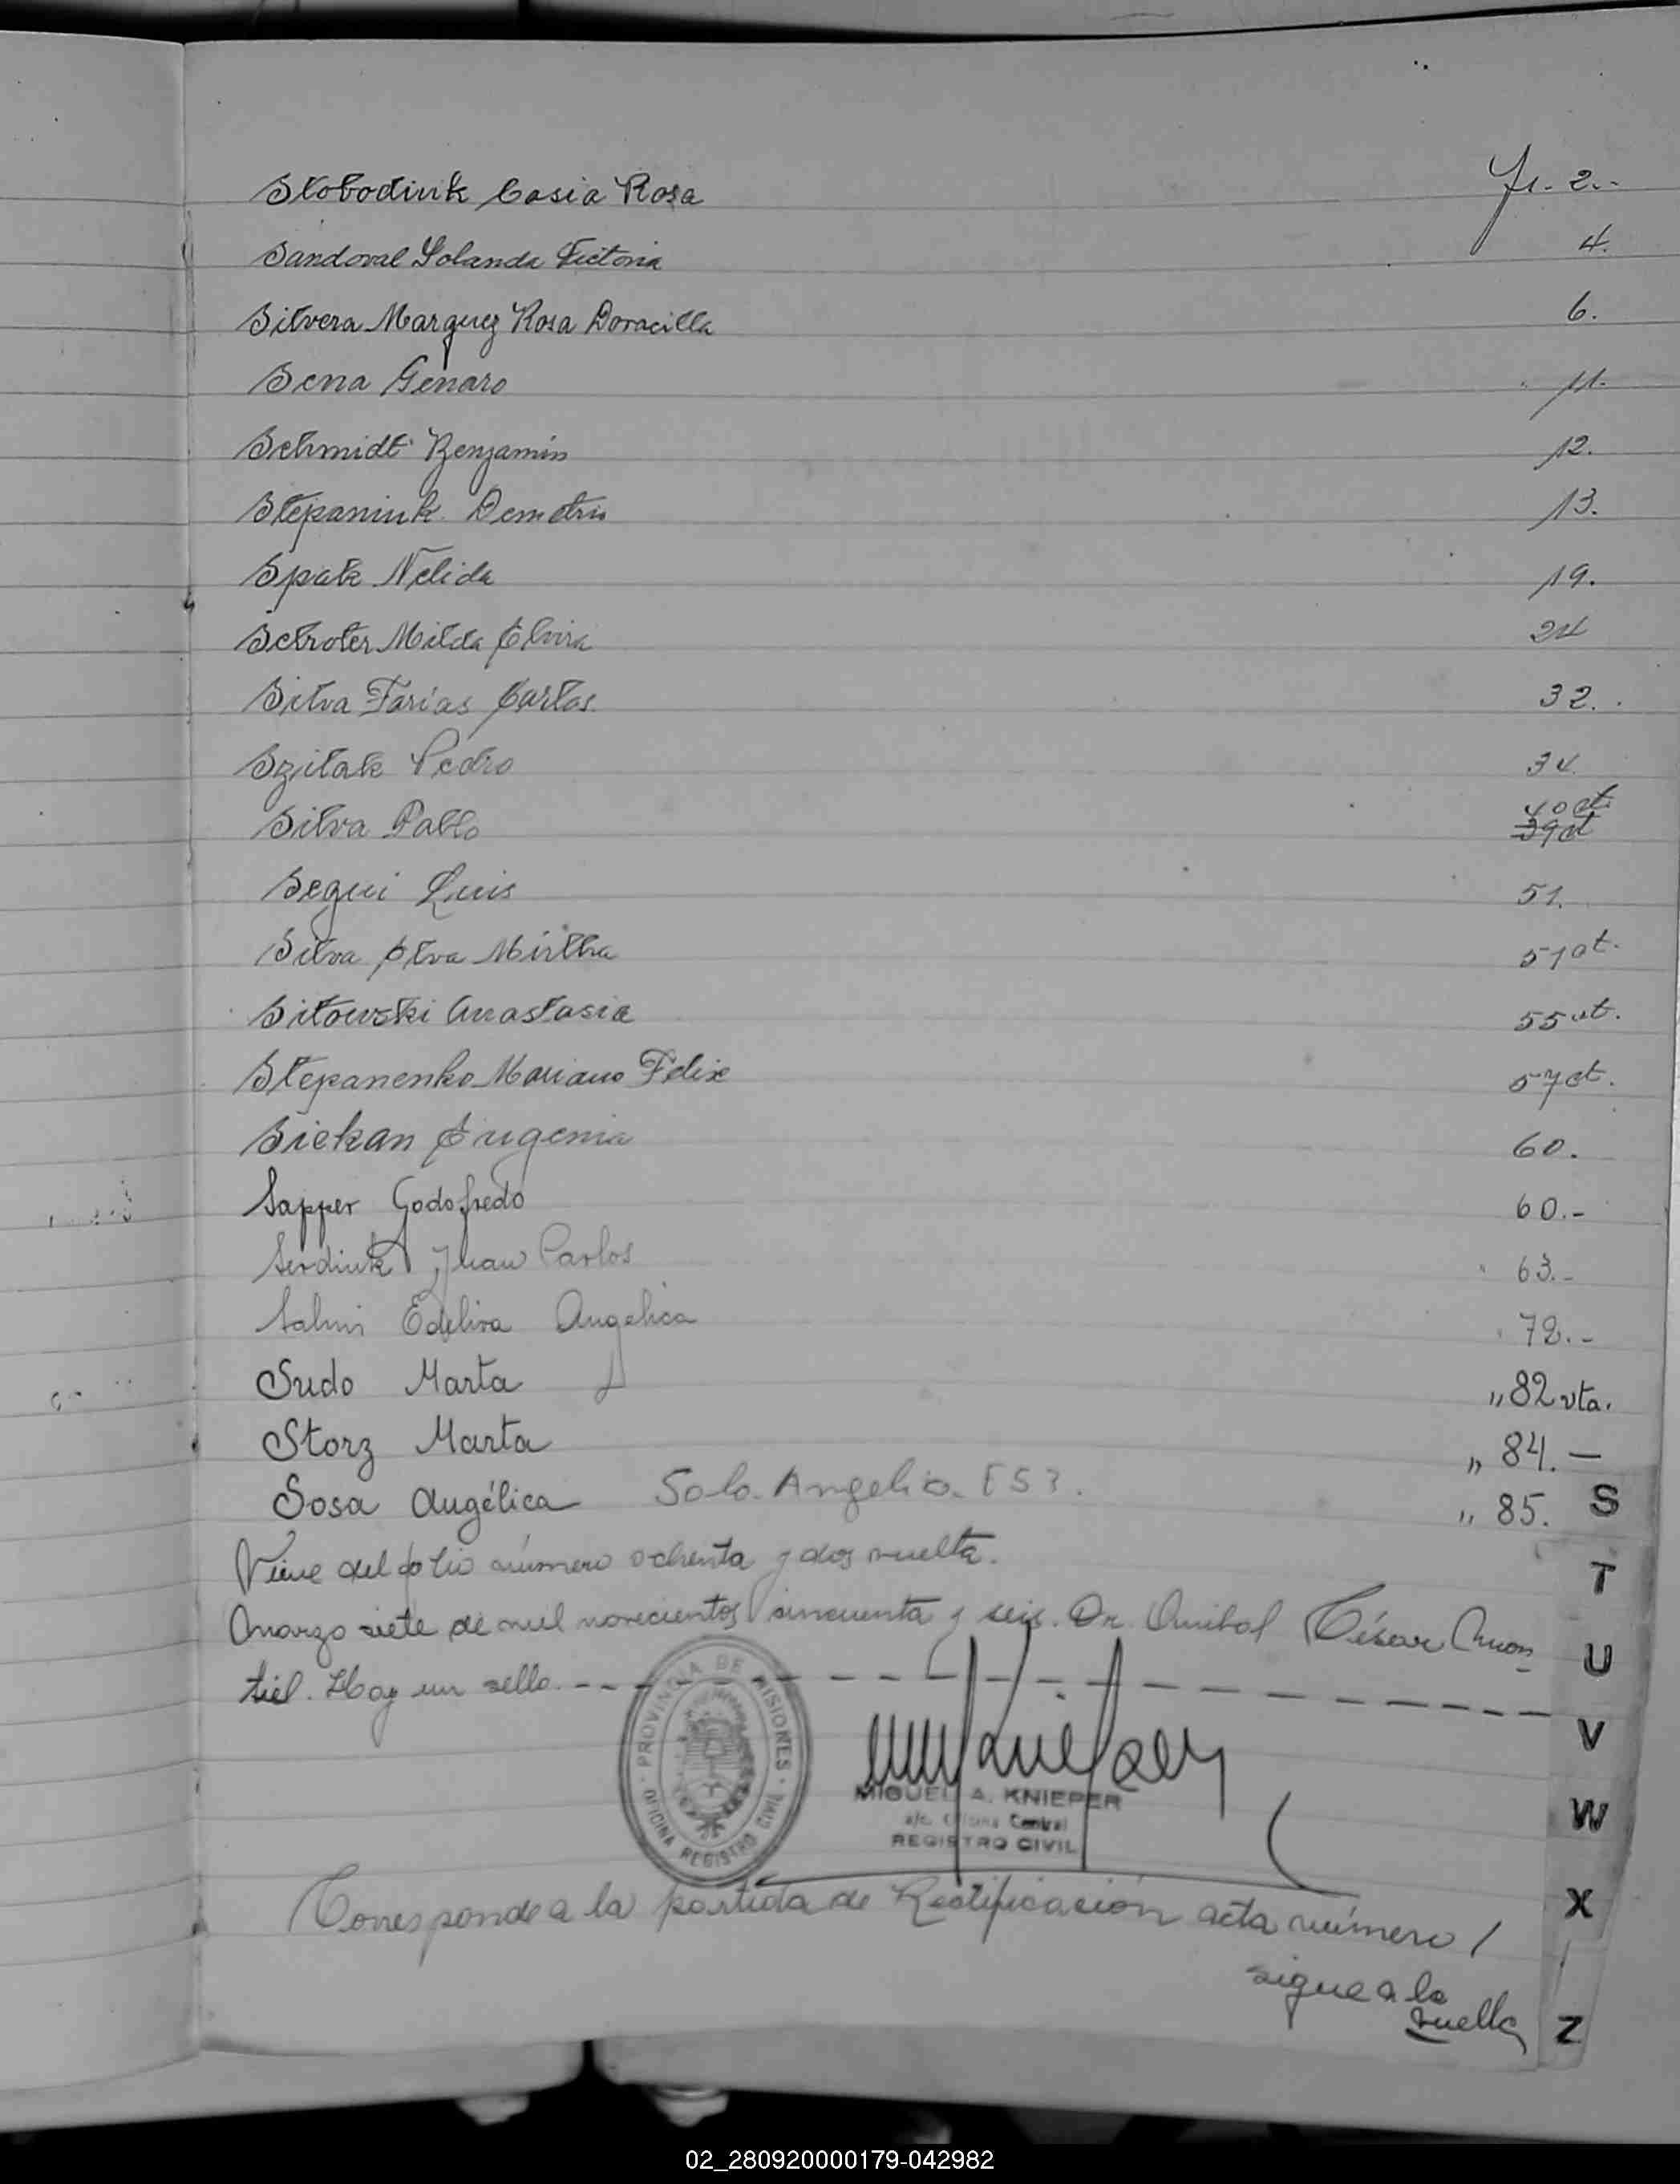 Slobodiuk Casia Rosa Fs. 2.-
Sandoval Yolanda Victoria 4.
Silvera Marquez Rosa Doracilla 6.
Sena Genaro 11.
Schmidt Benjamin 12.
Stepaniuk Demetrio 13.
Spak Nelida 19.
Schroter Milda Elvira 24
Silva Farías Carlos 32.
Szilak Pedro 34.
Silva Pablo 40 vt.
39 vt
Segui Luis 51.
Silva Elva Mirtha 51 vt.
Sitowski Anastasia 55 vt.
Stepanenko Mariano Felix 57 vt.
Siekan Eugenia 60.
Sapper Godofredo 60.-
Serdiuk Juan Carlos 63.-
Edelira Angelica 78.-
Sudo Marta „ 82 vta.
Storz Marta „ 84. —
Sosa Angélica Solo Angelia [S] „ 85.
Viene del folio número ochenta y dos vuelta.
Marzo siete de mil novecientos cincuenta y seis. Dr. Anibal César Mon
tiel. Hay un sello. - - -
PROVINCIA DE MISIONES
OFICINA REGISTRO CIVIL
MIGUEL A. KNIEPER
a/c. Oficina Central
REGISTRO CIVIL
Corresponde a la partida de Rectificación acta número 1
sigue a la
vuelta
S
T
U
V
W
X
Z
02_280920000179-042982